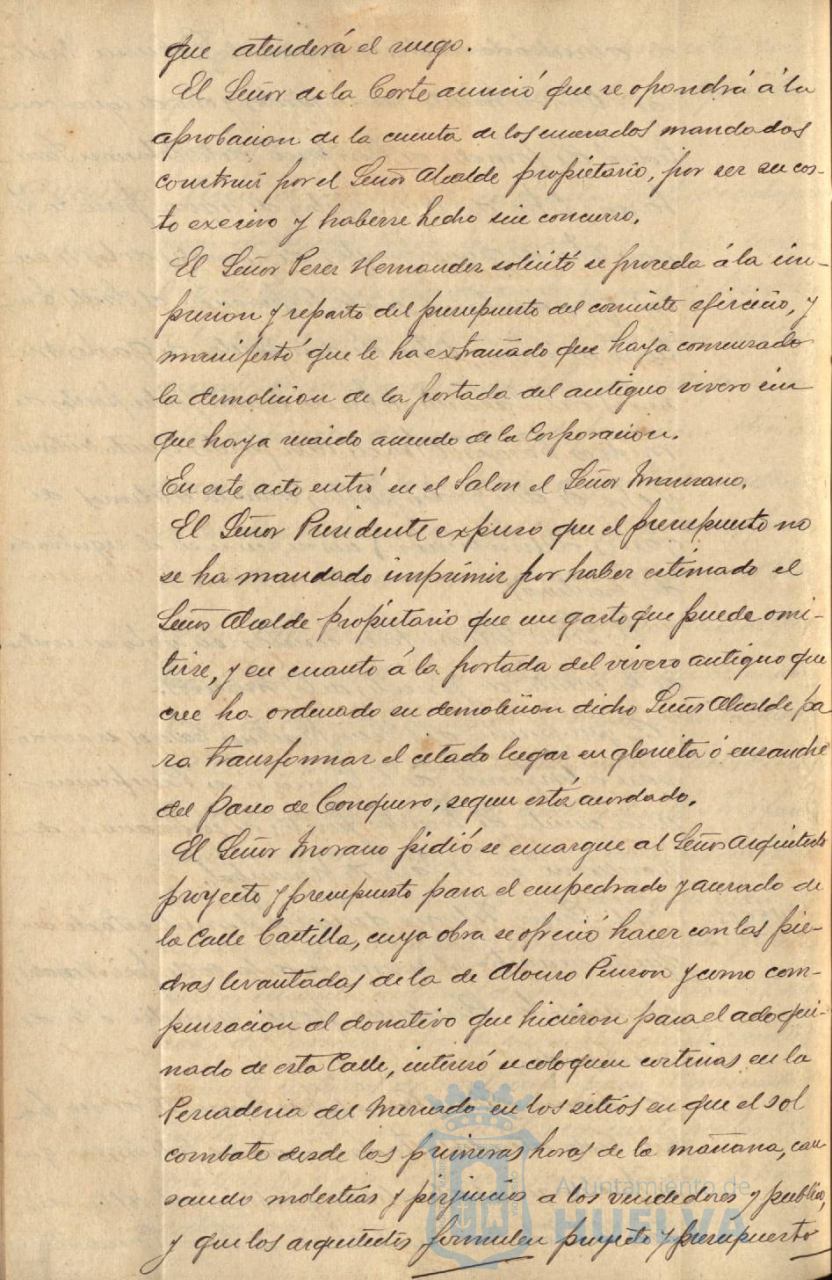 que atenderá el ruego.
El Señor de la Corte anunció que se opondrá á la
aprobacion de la cuenta de los encerados mandados
construir por el Señor Alcalde propietario, por ser su cos-
to exesivo y haberse hecho sin concurso.
El Señor Perez Hernandez solicitó se proceda á la im-
presion y reparto del presupuesto del corriente ejercicio, y
manifestó que le ha extrañado que haya comenzado
la demolicion de la portada del antiguo vivero sin
que haya recaido acuerdo de la Corporacion.
En este acto entró en el Salon el Señor Manzano.
El Señor Presidente expuso que el presupuesto no
se ha mandado imprimir por haber estimado el
Señor Alcalde propietario que es un gasto que puede omi-
tirse, y en cuanto á la portada del vivero antiguo que
cree ha ordenado su demolicion dicho Señor Alcalde pa
ra transformar el citado lugar en glorieta ó ensanche
del Paseo de Conquero, segun está acordado.
El Señor Morano pidió se encargue al Señor Arquitecto
proyecto y presupuesto para el empedrado y acerado de
la Calle Castilla, cuya obra se ofreció hacer con las pie-
dras levantadas de la de Alonso Pinzon y como com-
pensacion al donativo que hicieron para el adoqui-
nado de esta Calle, interesó se coloquen cortinas en la
Pescaderia del Mercado en los sitios en que el sol
combate desde las primeras horas de la mañana, cau
sando molestias y perjuicios a los vendedores y publico,
y que los arquitectos formulen proyecto y presupuesto
Ayuntamiento de
HUELVA